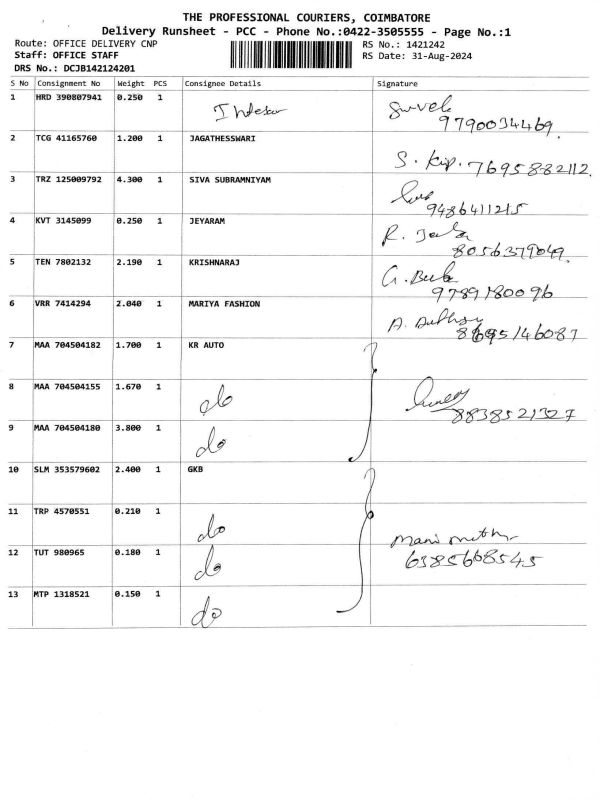 THE PROFESSIONAL COURIERS, COIMBATORE
Delivery Runsheet - PCC - Phone No.:0422-3505555 - Page No.:1
Route: OFFICE DELIVERY CNP RS No.: 1421242
Staff: OFFICE STAFF RS Date: 31-Aug-2024
DRS No.: DCJB142124201
S No Consignment No Weight PCS Consignee Details Signature
1 HRD 390807941 0.250 1
9790034469
2 TCG 41165760 1.200 1 JAGATHESSWARI
S. 7695882112
3 TRZ 125009792 4.300 1 SIVA SUBRAMNIYAM
9486411215
4 KVT 3145099 0.250 1 JEYARAM R.
8056379049
5 TEN 7802132 2.190 1 KRISHNARAJ G.
9789180096
6 VRR 7414294 2.040 1 MARIYA FASHION A.
7 MAA 704504182 1.700 1 KR AUTO
8 MAA 704504155 1.670 1 do
8838521327
9 MAA 704504180 3.800 1 do
10 SLM 353579602 2.400 1 GKB
11 TRP 4570551 0.210 1 do
12 TUT 980965 0.180 1 do 6385668545
13 MTP 1318521 0.150 1 do